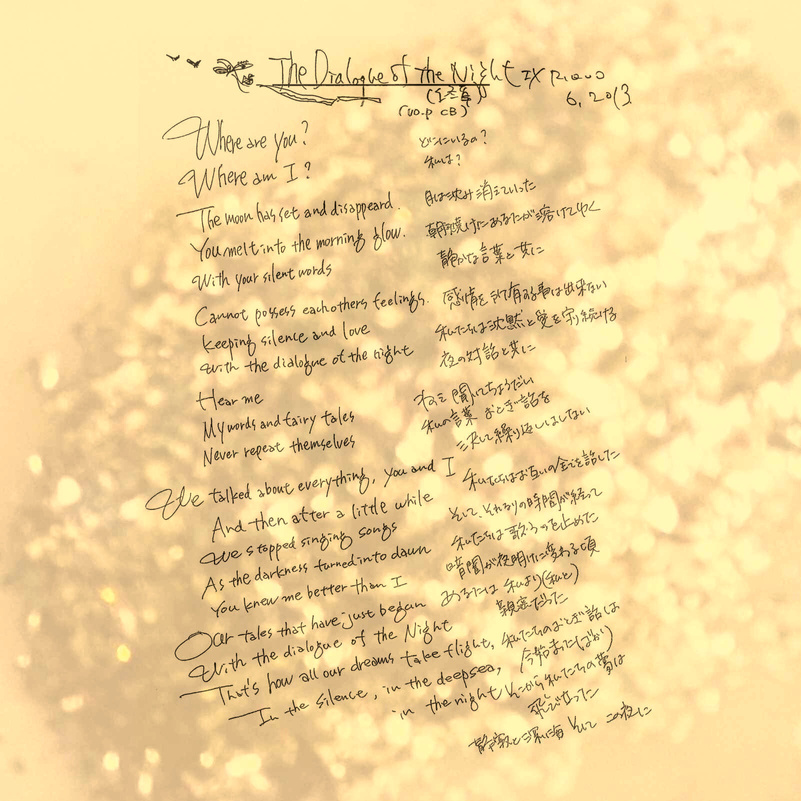 The Dialogue of the Night IX
6, 2013
(vo. p CB)
Where are you?
どこにいるの?
Where am I?
私は?
The moon has set and disappeard.
月は沈み消えていった
You melt into the morning glow.
朝焼けにあなたが溶けてゆく
With your silent words
静かな言葉と共に
Cannot possess eachothers feelings.
感情を 有する事は出来ない
keeping silence and love
私たちは沈黙と愛を守り続ける
with the dialogue of the night
夜の対話と共に
Hear me
ねえ 聞いてちょうだい
My words and fairy tales
私の言葉 おとぎ話を
Never repeat themselves
決して繰り返しはしない
We talked about everything, you and I
私たちはお互いの全てを話した
And then after a little while
そして の時間が経って
We stopped singing songs
私たちは歌うのを止めた
As the darkness turned into dawn
暗闇が夜明けに変わる頃
You knew me better than I
あなたは 私より(私と)
親密だった
Our tales that have just began
私たちのおとぎ話は
With the dialogue of the Night
今始まった(ばかり)
That's how all our dreams take flight,
そこから私たちの夢は
飛び立った
In the silence, in the deepsea,
in the night
静寂と深い海 そして この夜に